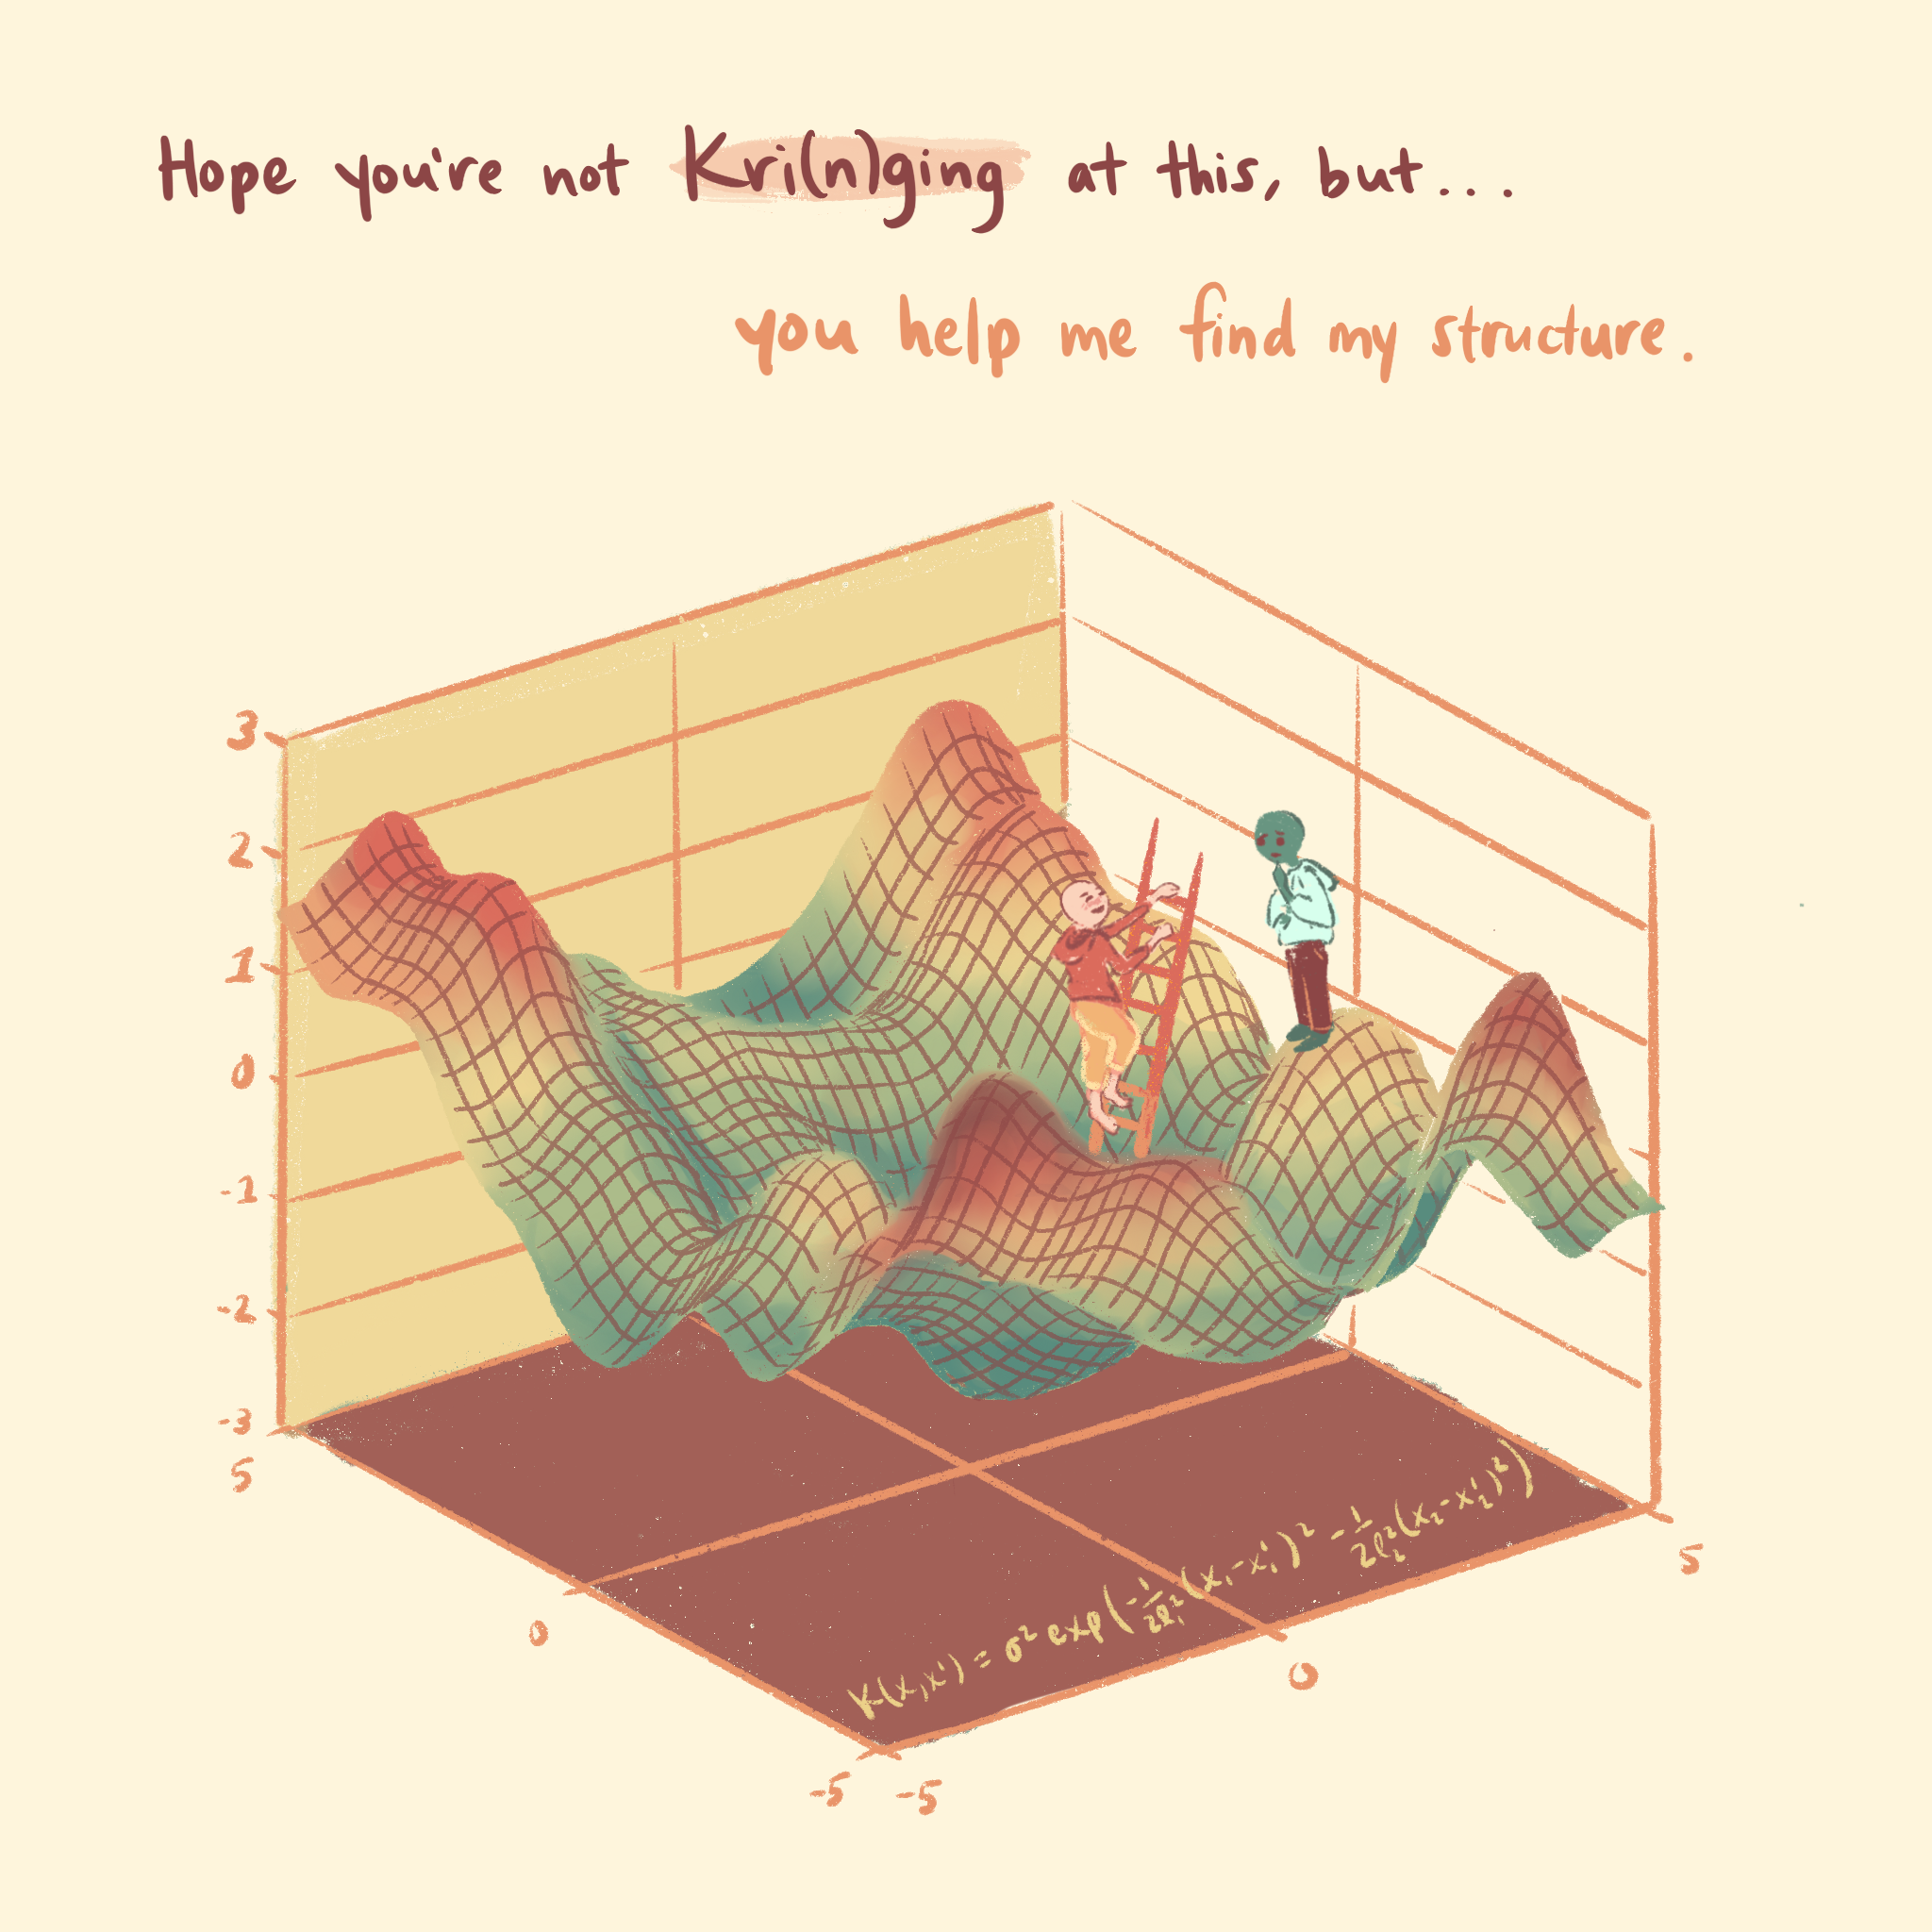 Hope you're not Kri(n)ging at this, but...
you help me find my structure.
3
2
1
0
-1
-2
-3
5
0
-5
-5
0
5
K(x,x') = σ² exp(-1/2ℓ₁² (x₁-x₁')² - 1/2ℓ₂² (x₂-x₂')²)